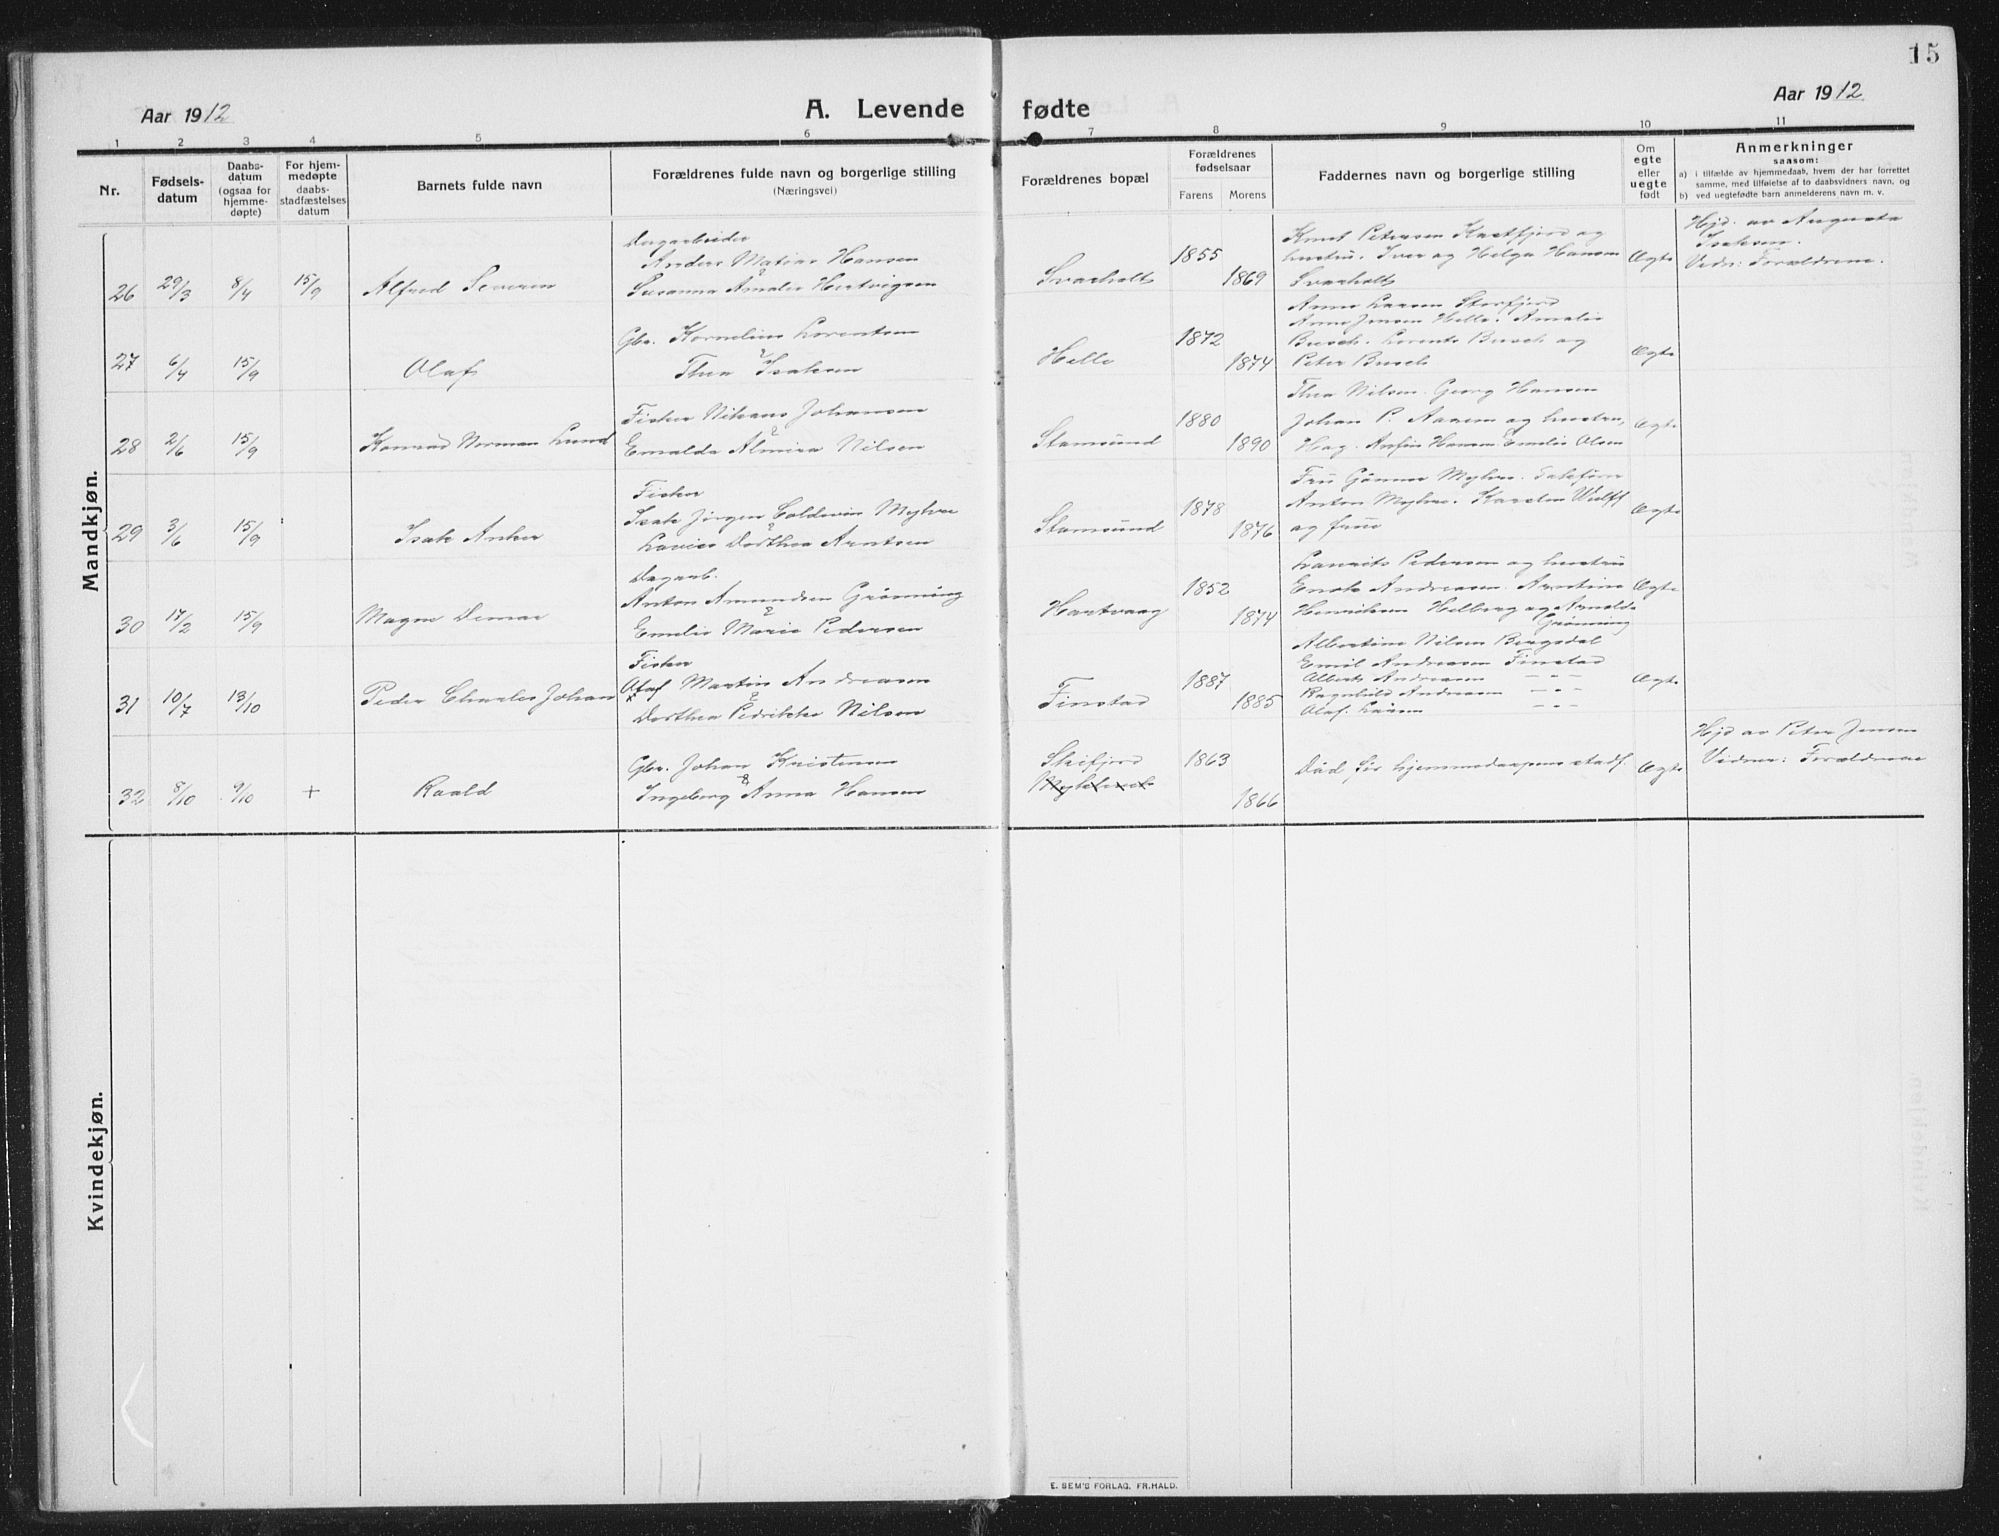 15
Aar 1912
A. Levende fødte
Aar 1912
1 2 3 4 5 6 7 8 9 10 11
Nr.
Fødsels-
datum
Daabs-
datum
(ogsaa for
hjemme-
døpte)
For hjem-
medøpte
daabs-
stadfæstelses
datum
Barnets fulde navn
Forældrenes fulde navn og borgerlige stilling
(Næringsvei)
Forældrenes bopæl
Forældrenes
fødselsaar
Farens Morens
Faddernes navn og borgerlige stilling
Om
egte
eller
uegte
født
Anmerkninger
saasom:
a) i tilfælde av hjemmedaab, hvem der har forrettet
samme, med tilføielse af to daabsvidners navn, og
b) ved uegtefødte barn anmelderens navn m. v.
Mandkjøn.
26 29/3 8/4 15/9 Alfred Severin
Dagarbeider
Anders Matias Hansen
&
Susanna Amalie Hertvigsen
Svarholt 1855 1869
Knut Petersen Kartfjord og
hustru. Iver og Helga Hansen
Svarholt
Ægte
Hjd. av Augusta
Isaksen.
Vidn: Forældrene.
27 6/4 15/9 Olaf
Gbr. Kornelius Lorentsen
&
Thea Isaksen
Helle 1872 1874
Anna Larsen Storfjord
Anna Jensen Helle. Amalie
Busch. Lorents Busch og
Peter Busch
Ægte
28 2/6 15/9 Konrad Norman Lund
Fisker Nikaus Johansen
&
Emalda Almira Nilsen
Stamsund 1880 1890
Thea Nilsen. Georg Hansen
Johan P. Aagen og hustru,
Hag. Arfin Hansen. Emelie Olsen
Ægte
29 3/6 15/9 Isak Anker
Fisker
Isak Jörgen Coldevin Myhre
&
Lovise Dorthea Arntsen
Stamsund 1878 1876
Fru Gunnar Myhre.
Anton Myhre. Karsten Wulff
og frue
Ægte
30 17/2 15/9 Magne Demar
Dagarb.
Anton Amundsen Grönning
&
Emelie Marie Pedersen
Hartvaag 1852 1874
Laurits Pedersen og hustru
Enok Andreasen. Arntine
Henriksen Helberg og Arnolda
Grönning
Ægte
31 10/7 13/10 Peder Charles Johan
Fisker
Olaf Martin Andreasen
&
Dorthea Pedrikke Nilsen
Finstad 1887 1885
Albertine Nilsen Bergsdal
Emil Andreasen Finstad
Alberts Andreasen - " -
Ragnhild Andreasen - " -
Olaf Larsen - " -
Ægte
32 8/10 9/10 + Roald
Gbr. Johan Kristensen
&
Ingeborg Anna Hansen
Skifjord 1863 1866
Död för hjemmedaapens stadf.
Ægte
Hjd av Peter Jensen
Vidner: Forældrene
Kvindekjøn.
E. SEM'S FORLAG, FR.HALD.